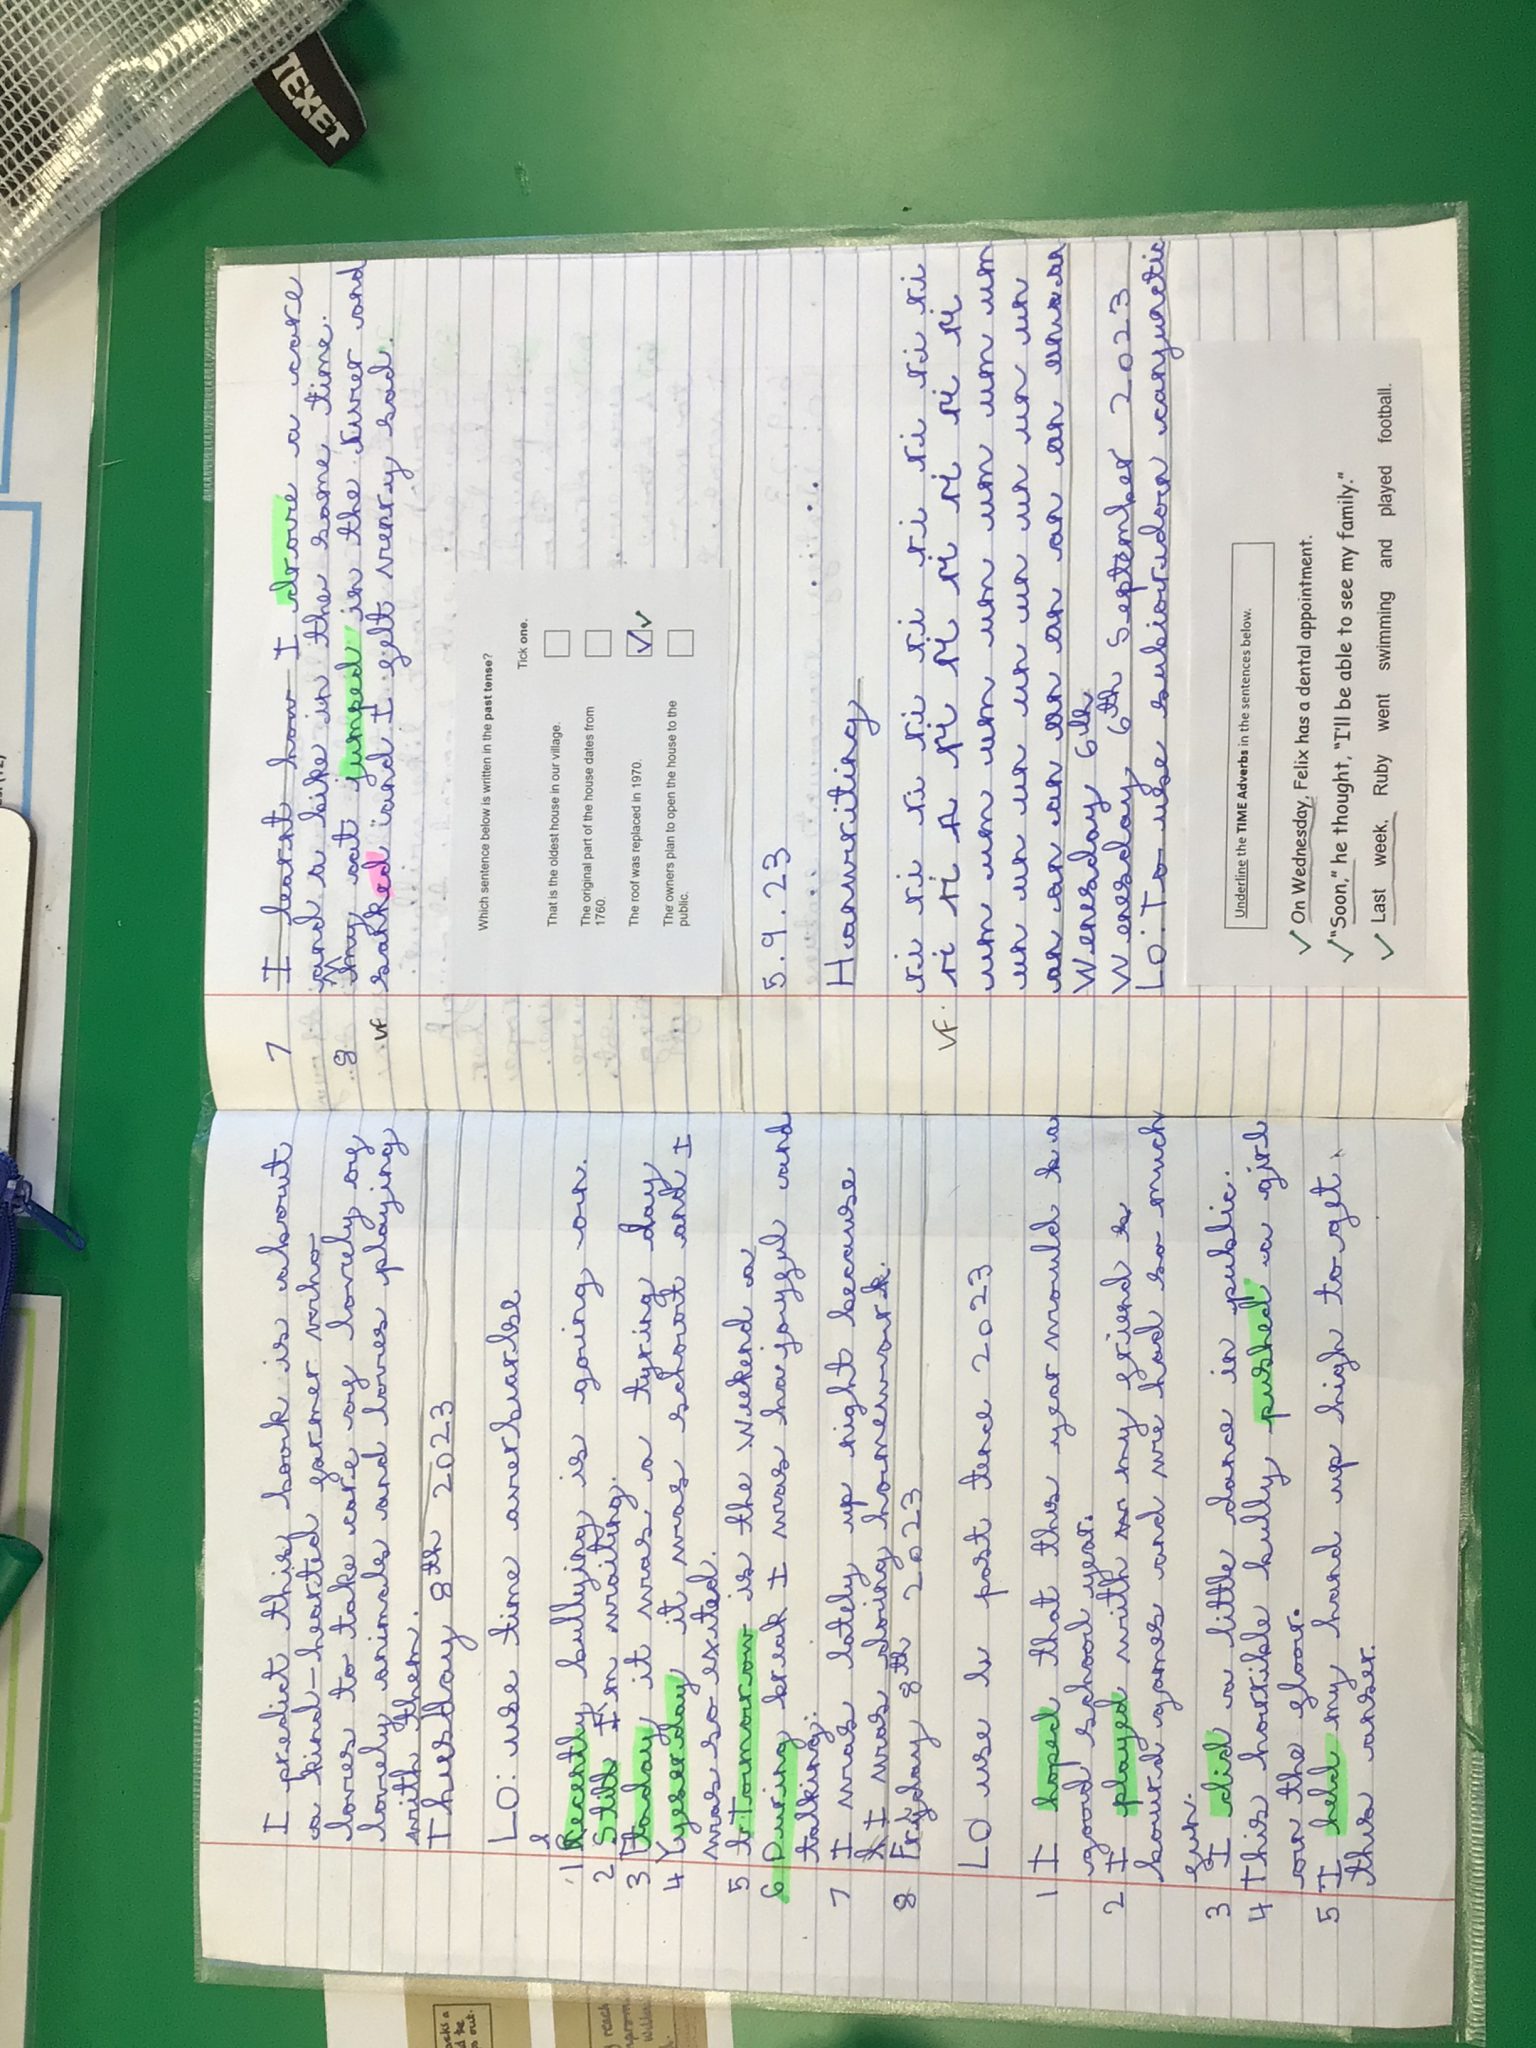 I predict this book is about
a kind-hearted farmer who
loves to take care of lovely of
lovely animals and loves playing
with them.
Thusday 8th 2023
LO: use time averbarbs
1 Recently bullying is going on.
2 Still I'm waiting.
3 today it was a tyring day
4 Yeserday it was schoot and I
was so exited.
5 Tomorow is the Weekend a
6 During break I was hajoyful and
talking.
7 I was lately up night because
I was doing homework.
8 Fryday 8th 2023
LO use to past tence 2023
1 I hoped that this year would be a
good school year.
2 I played with my friend &
board games and we had so much
fun.
3 I did a little dance in public.
4 This horrible bully pushed a girl
on the floor.
5 I held my hand up high to get
this anser.
7 I learnt how I drove a care
and a bike in the same time.
8 My cat jumped in the river and
sanked and I felt verry sad.
VF
Which sentence below is written in the past tense?
Tick one.
That is the oldest house in our village.
The original part of the house dates from
1760.
The roof was replaced in 1970.
The owners plan to open the house to the
public.
5.9.23
Hanwriting
ri ri ri ri ri ri ri ri ri ri
VF.
ri ri n ri ri ri ri ri ri
um um um um um um um um
un un un un un un un un
an an an an an an an an an an
Wensday 6th
Wenesday 6th September 2023
LO: To use subiouridora canyunctio
Underline the TIME Adverbs in the sentences below.
On Wednesday, Felix has a dental appointment.
"Soon," he thought, "I'll be able to see my family."
Last week, Ruby went swimming and played football.
TEXET